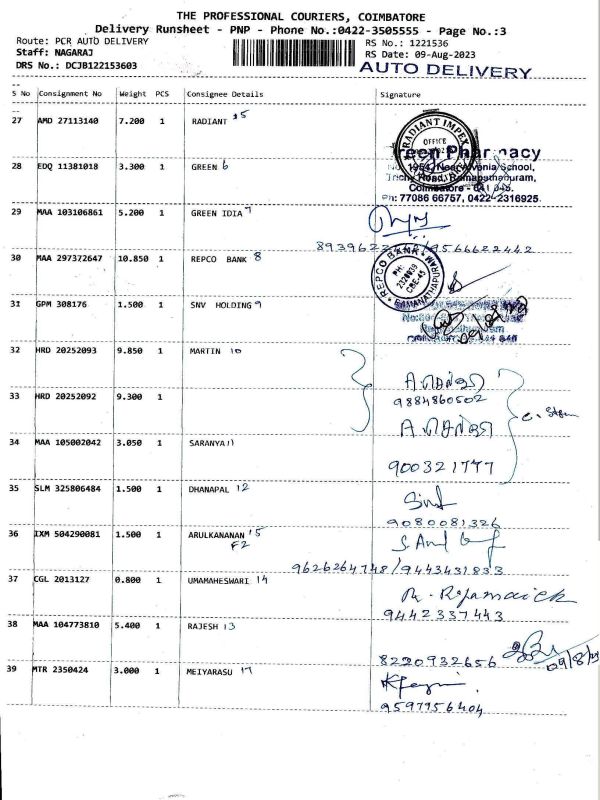 THE PROFESSIONAL COURIERS, COIMBATORE
Delivery Runsheet - PNP - Phone No.:0422-3505555 - Page No.:3
Route: PCR AUTO DELIVERY RS No.: 1221536
Staff: NAGARAJ RS Date: 09-Aug-2023
DRS No.: DCJB122153603 AUTO DELIVERY
S No Consignment No Weight PCS Consignee Details Signature
27 AMD 27113140 7.200 1 RADIANT 35
RADIANT IMPEX
OFFICE
28 EDQ 11381018 3.300 1 GREEN 6
Green Pharmacy
School,
Trichy Road, Ramanathapuram,
Coimbatore - 641 045.
Ph: 77086 66757, 0422-2316925
29 MAA 103106861 5.200 1 GREEN IDIA 7
/9566622442
30 MAA 297372647 10.850 1 REPCO BANK 8
REPCO BANK
PH:
2320939
CBE-45
RAMANATHAPURAM
31 GPM 308176 1.500 1 SNV HOLDING 9
32 HRD 20252093 9.850 1 MARTIN 10
9884860502
33 HRD 20252092 9.300 1
34 MAA 105002042 3.050 1 SARANYA 11
900321777
35 SLM 325806484 1.500 1 DHANAPAL 12
9080081326
36 IXM 504290081 1.500 1 ARULKANANAN 15
F2
9626264748/9443431833
37 CGL 2013127 0.800 1 UMAMAHESWARI 14
9442337443
38 MAA 104773810 5.400 1 RAJESH 13
8220932656
39 MTR 2350424 3.000 1 MEIYARASU 17
9597756404